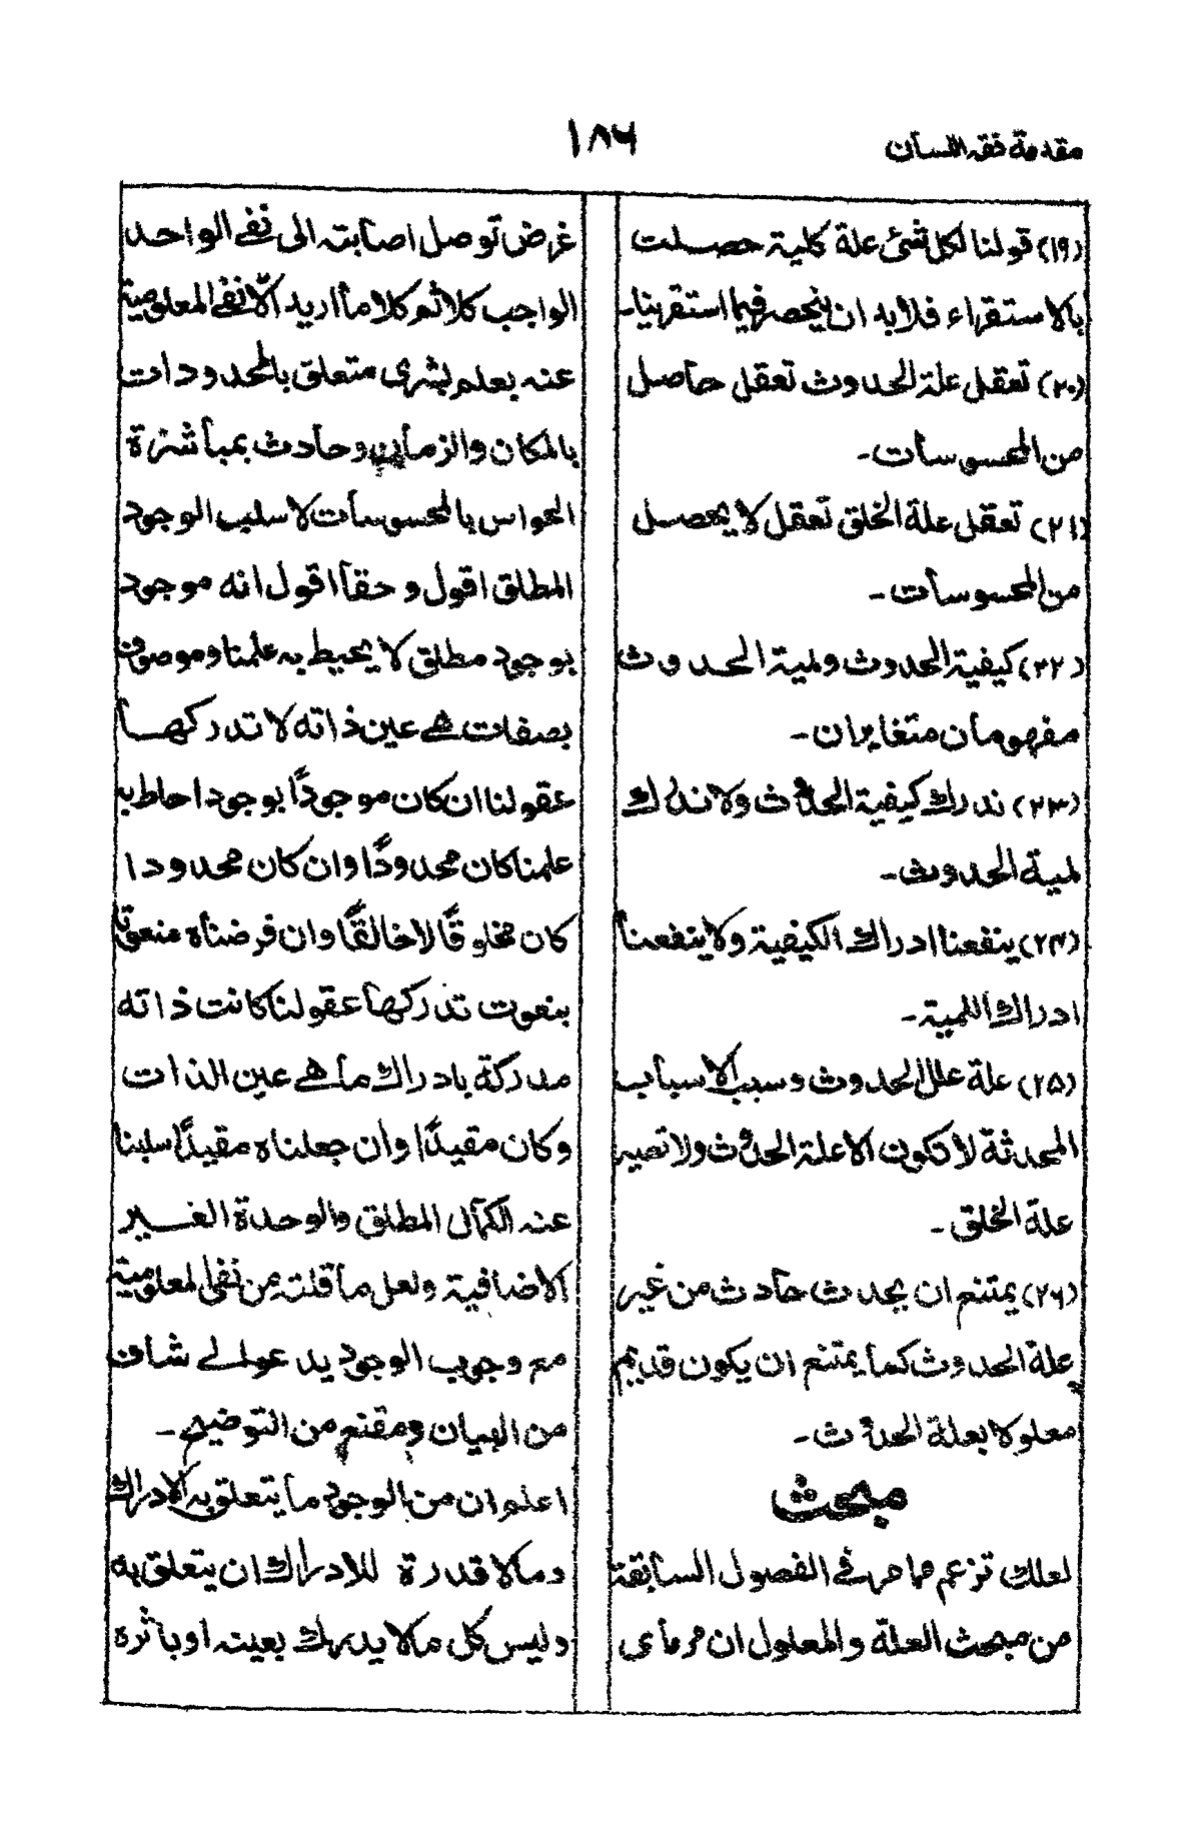 مقدمة فقه اللسان
١٨٦
(١٩) قولنا لكل شئ علة كلية حصلت
بالاستقراء فلابد ان ينحصر فيما استقرينا۔
(٢٠) تعقل علة الحدوث تعقل حاصل
من المحسوسات۔
(٢١) تعقل علة الخلق تعقل لا يحصل
من المحسوسات۔
(٢٢) كيفية الحدوث ولمية الحدوث
مفهومان متغايران۔
(٢٣) ندرك كيفية الحدوث ولا ندرك
لمية الحدوث۔
(٢٤) ينفعنا ادراك الكيفية ولا ينفعنا
ادراك اللمية۔
(٢٥) علة علل الحدوث وسبب الاسباب
المحدثة لا تكون الا علة الحدوث ولا تصير
علة الخلق۔
(٢٦) يمتنع ان يحدث حادث من غير
علة الحدوث كما يمتنع ان يكون قديم
معلولا بعلة الحدوث۔
مبحث
لعلك تزعم مما مر فى الفصول السابقة
من مبحث العلة والمعلول ان مرماى
غرض توصل اصابته الى نفے الواحد
الواجب كلا ثم كلا ما اريد الّا نفى المعلومية
عنه بعلم بشرى متعلق بالمحدودات
بالمكان والزمان وحادث بمباشرة
الحواس بالمحسوسات لا سلب الوجود
المطلق اقول و حقا اقول انه موجود
بوجود مطلق لا يحيط به علمنا وموصوف
بصفات هے عين ذاته لا تدركها
عقولنا ان كان موجودًا بوجود احاط به
علمنا كان محدودًا وان كان محدودا
كان مخلوقًا لا خالقًا وان فرضناه منعوتا
بنعوت تدركها عقولنا كانت ذاته
مدركة بادراك ما هے عين الذات
وكان مقيدًا وان جعلناه مقيدًا سلبنا
عنه الكمال المطلق والوحدة الغير
الاضافية ولعل ما قلته من نفى المعلومية
مع وجوب الوجود يد عو الے شاف
من البيان ومقنع من التوضيح۔
اعلم ان من الوجود ما يتعلق به الادراك
ومالا قدرة للادراك ان يتعلق به
وليس كل مالا يدرك بعينه او باثره